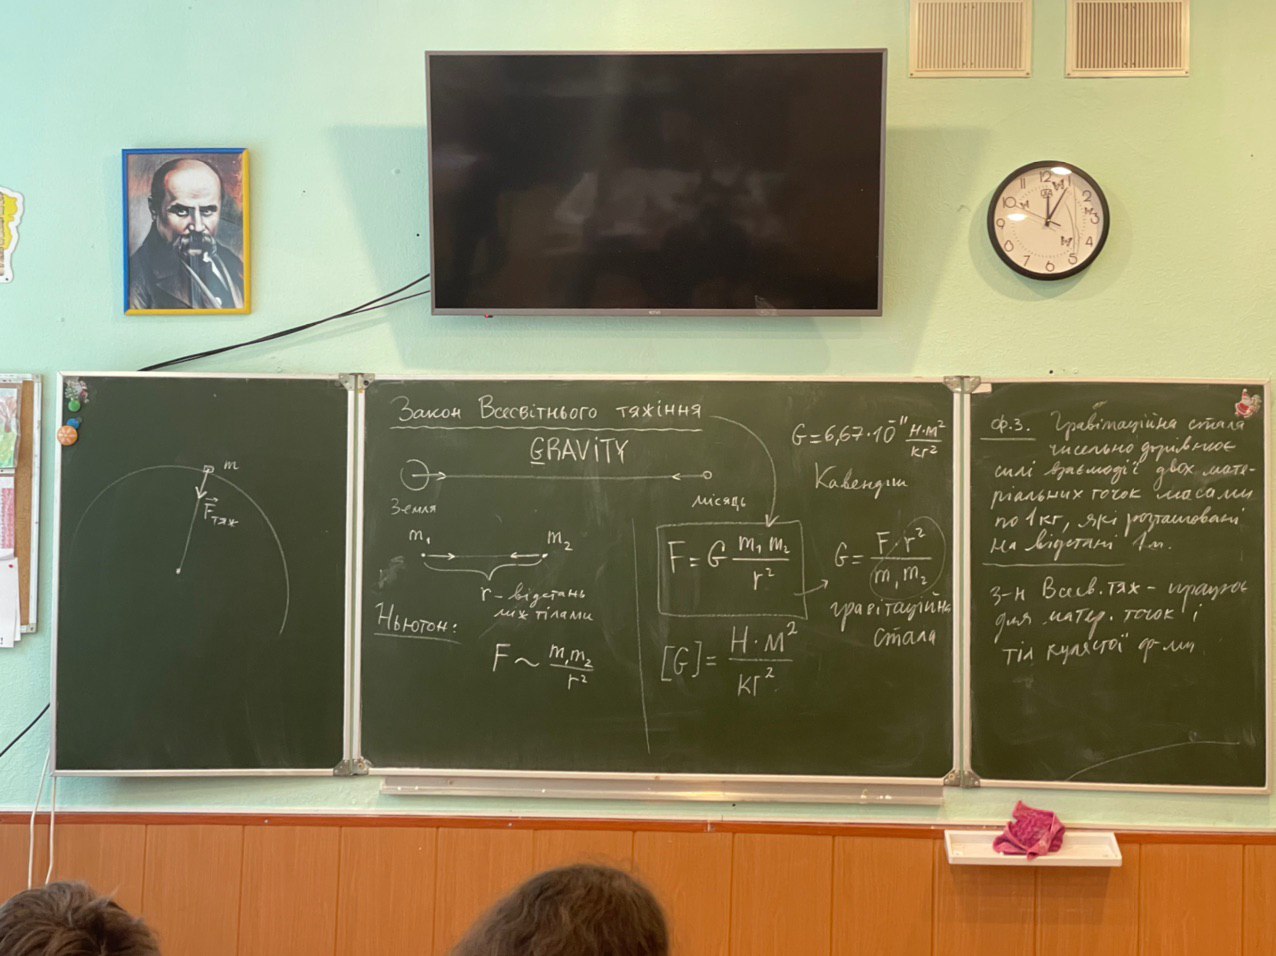 m
F⃗тяж
Закон Всесвітнього тяжіння
GRAVITY
Земля
місяць
m₁ m₂
r - відстань
між тілами
Ньютон:
F ~ m₁m₂/r²
G = 6,67·10⁻¹¹ Н·м²/кг²
Кавендіш
F = G m₁m₂/r²
G = F·r²/m₁m₂
гравітаційна
стала
[G] = Н·м²/кг²
Ф.З. Гравітаційна стала
чисельно дорівнює
силі взаємодії двох мате-
ріальних точок масами
по 1 кг, які розташовані
на відстані 1 м.
З-н Всесв. тяж - працює
для матер. точок і
тіл кулястої ф-ми
12
2
3
4
5
6
7
8
9
10